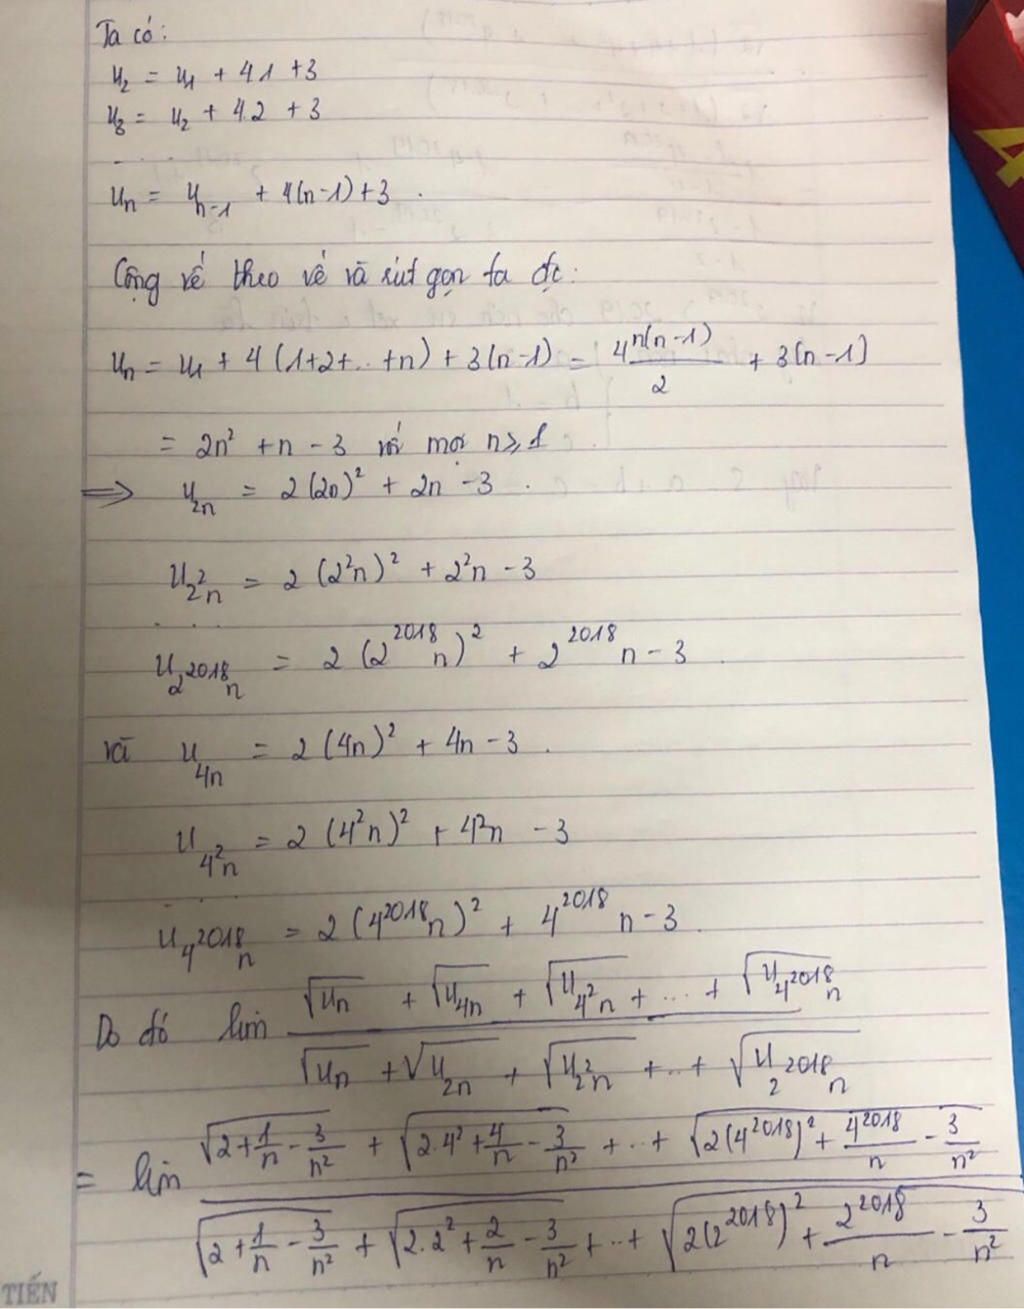 Ta có:
u₂ = u₁ + 4.1 + 3
u₃ = u₂ + 4.2 + 3
. . . .
uₙ = uₙ₋₁ + 4(n-1) + 3 .
Cộng vế theo vế và rút gọn ta đc:
uₙ = u₁ + 4(1+2+..+n) + 3(n-1) = 4 n(n-1)/2 + 3(n-1)
= 2n² + n - 3 với mọi n ≥ 1
⟹ u_{2n} = 2(2n)² + 2n - 3 .
u_{2²n} = 2(2²n)² + 2²n - 3
. . .
u_{2^2018 n} = 2(2^2018 n)² + 2^2018 n - 3
và u_{4n} = 2(4n)² + 4n - 3 .
u_{4²n} = 2(4²n)² + 4²n - 3
. . . .
u_{4^2018 n} = 2(4^2018 n)² + 4^2018 n - 3 .
Do đó lim (√uₙ + √u_{4n} + √u_{4²n} + ... + √u_{4^2018 n}) / (√uₙ + √u_{2n} + √u_{2²n} + ..+ √u_{2^2018 n})
= lim (√(2 + 1/n - 3/n²) + √(2.4² + 4/n - 3/n²) + ..+ √(2(4^2018)² + 4^2018/n - 3/n²)) / (√(2 + 1/n - 3/n²) + √(2.2² + 2/n - 3/n²) + ..+ √(2(2^2018)² + 2^2018/n - 3/n²))
TIẾN
4